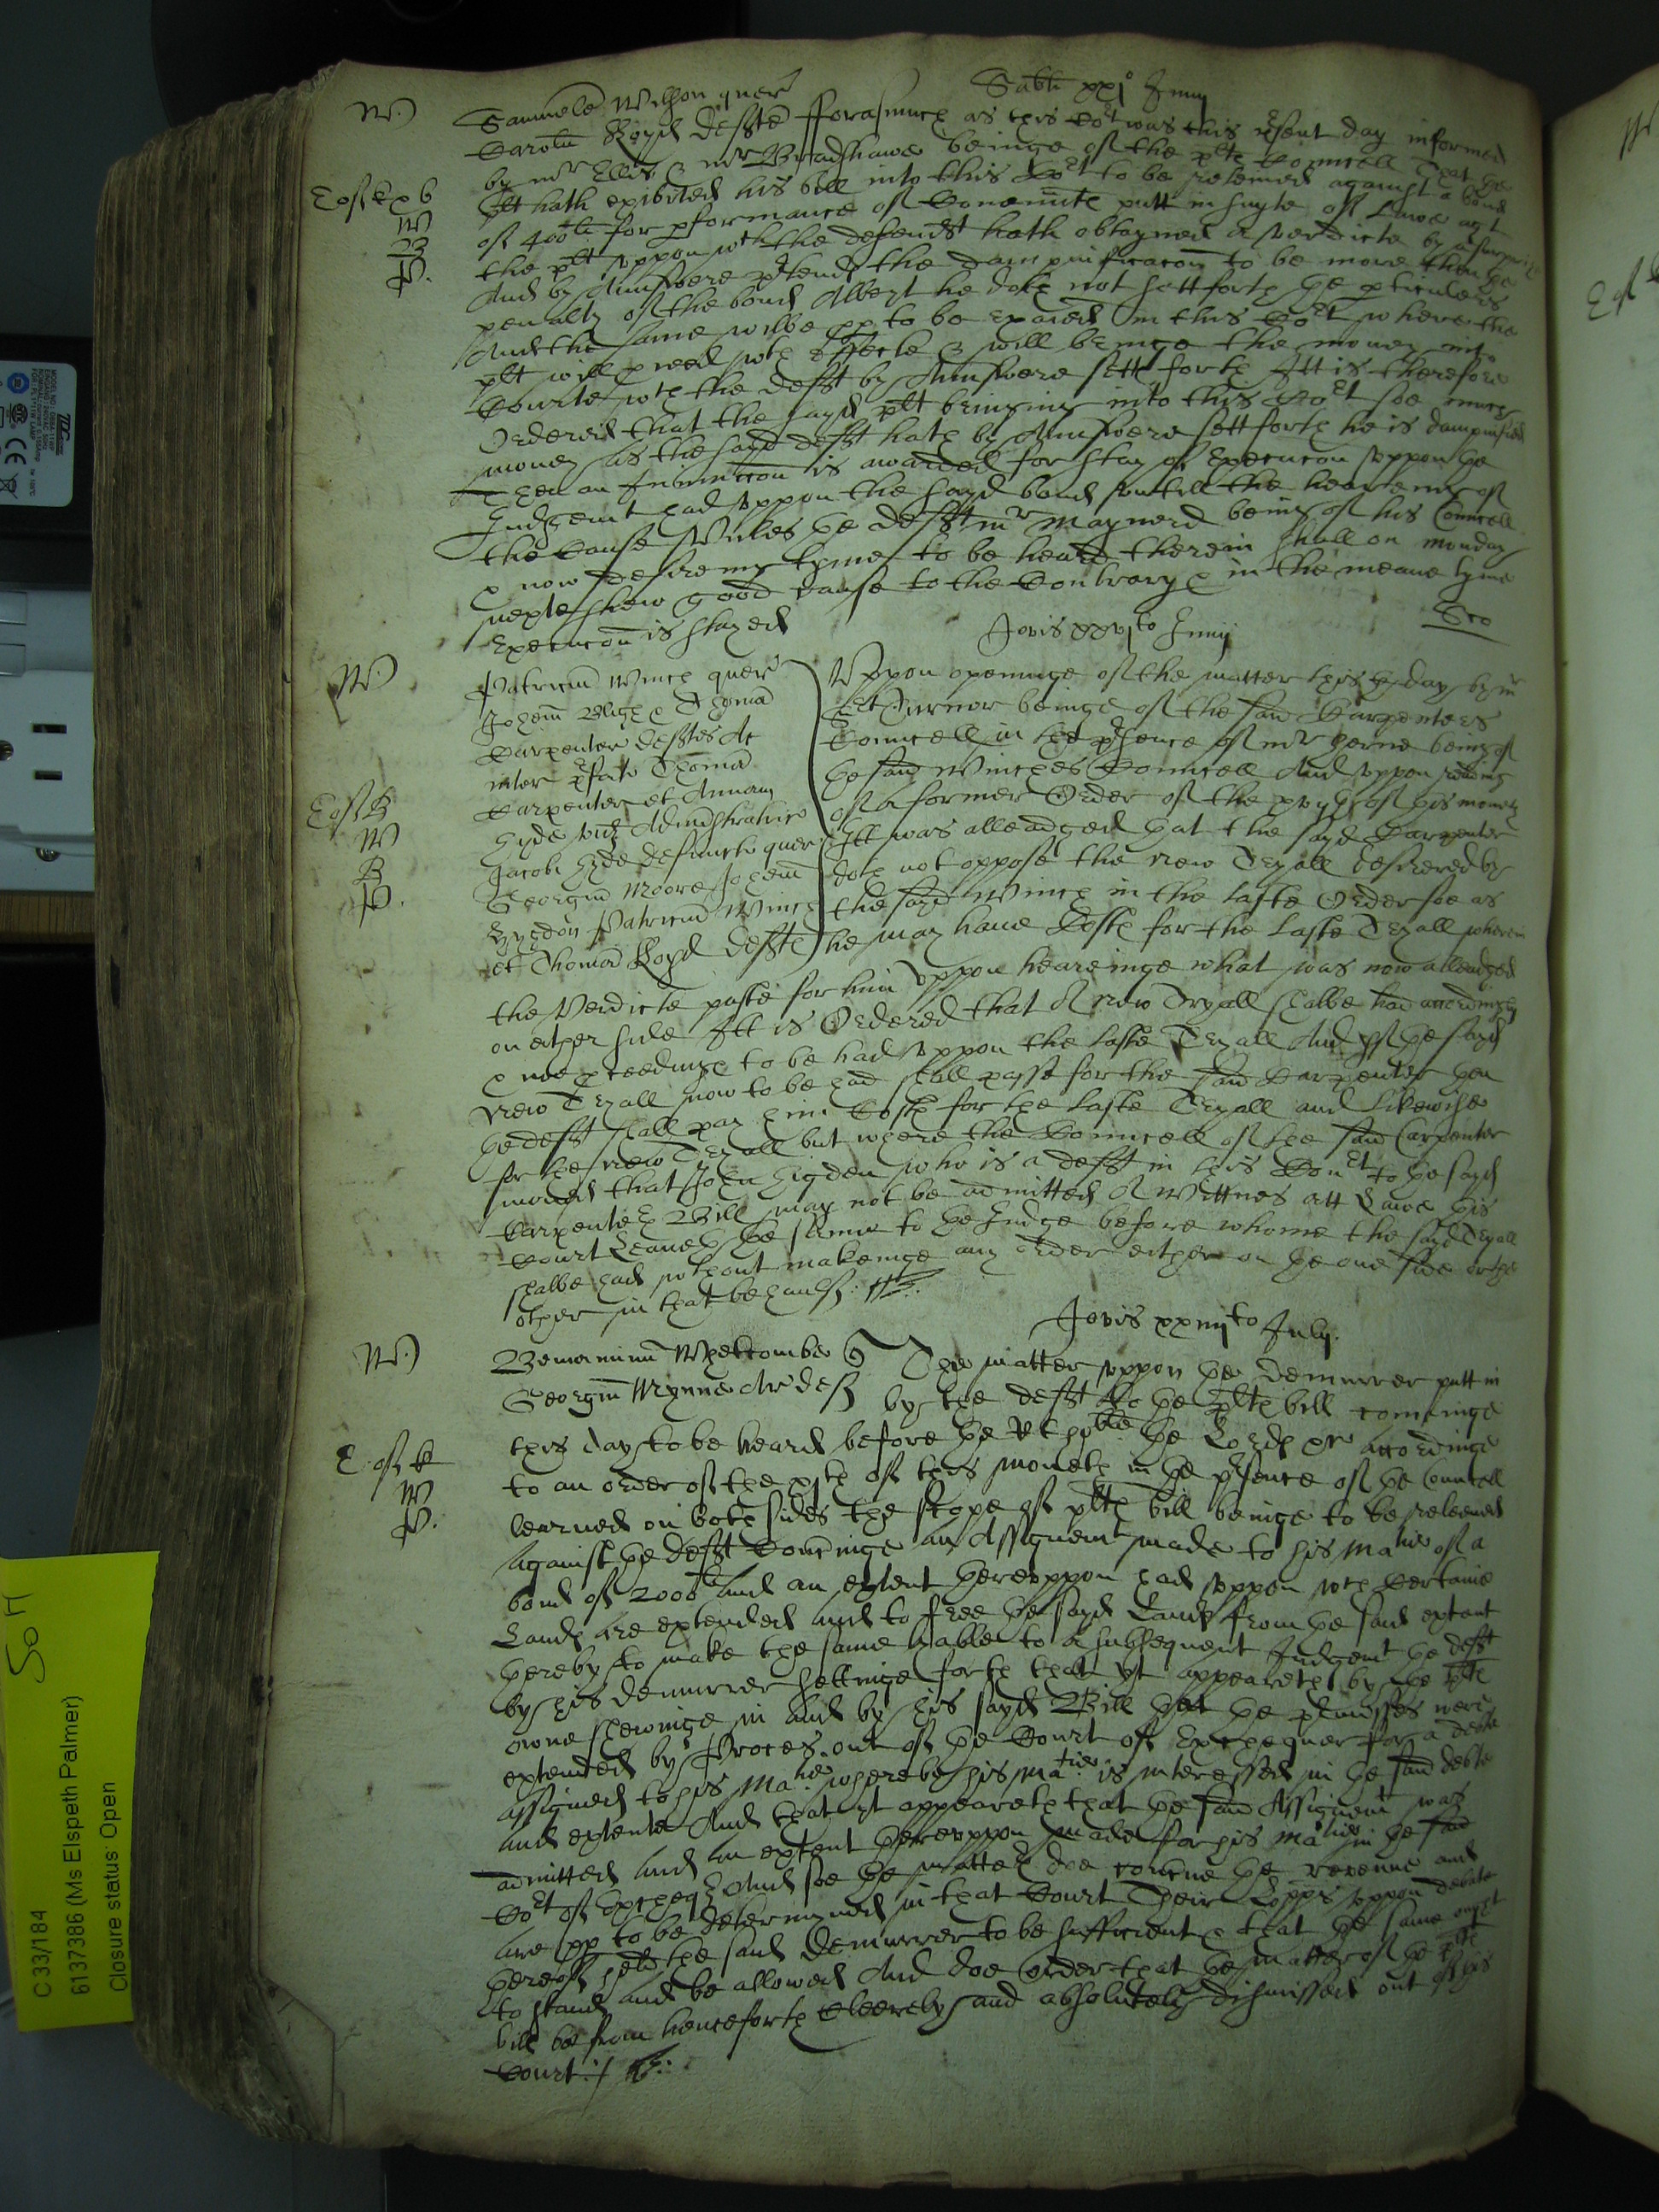 Sabti xxj° Junij
W)
Samuele Wilson quer
Carolu Boyd deffte fforasmuch as this Cort was this present day informed
by mr Ellis & mr Bradshawe beinge of the plts Councell That the
Eofs Exp b
plt hath exibited his bill into this Cort to be releived against a bond
W
of 400li for pformance of Covennts putt in suyte att Lawe agt
B
the plt uppon wch the defendt hath obtayned a verdicte by
P.
And by Aunswere ptends the dampnificacon to be more then the
penalty of the bond Albeyt he doth not sett forth the pticulers
And the same wilbe pp to be exaied in this Cort where the
plt will pceed wth effecte & will bringe the money into
Courte wch the defft by Aunswere setts forth Itt is therefore
Ordered that the sayd plt bringing into this Cort soe much
money as the sayd defft hath by Aunswere sett forth he is dampnified
Then an Iniunccon is awarded for stay of Execucon uppon the
Judgemt had uppon the sayd bond untill the heareing of
the Cause Unles the defft mr Maynerd being of his Councell
& now desireing tyme to be heard therein shall on Monday
nexte shew good cause to the Contrary & in the meane tyme
Execucon is stayed
Jovis xxvjto Junij
W)
Patriciu Winch quer
Johem Blige & Thoma
Carpenter defftes Ac
inter pfat Thoma
Carpenter et Annam
Eofs B
Hyde vid Administratrice
W
Jacobi Hyde defuncti quer
B
Georgiu Moore Johem
P.
Higdon Patriciu Winch
et Thoma Boyd deffte
Uppon openinge of the matter this day by mr
Turnor beinge of the said Carpenters
Councell in the psence of mr Herne being of
the said Winches Councell And uppon readeing
of a former Order of the of this moneth
Itt was alleadged that the sayd Carpenter
doth not oppose the new Tryall desiered by
the sayd Winch in the laste Order soe as
he may have Costs for the laste Tryall wherein
the Verdicte paste for him Uppon heareinge what was now alleadged
on either side Itt is Ordered that A new Tryall shalbe had accordingly
& noe pceedings to be had uppon the laste Tryall And yf the sayd
new Tryall now to be had shall passe for the said Carpenter then
the defft shall pay him Costs for the laste Tryall and likewise
for the new Tryall but where the Councell of the said Carpenter
moved that John Higden who is a defft in this Court to the sayd
Carpenters Bill may not be admitted A Wittnes att Lawe this
Court Leaveth the same to the Judge before whome the sayd Tryall
shalbe had wthout makeinge any order either on the one side or the
other in that behaulf
Jovis xxiiijto July
W)
Beniaminu Whetcombe q The matter uppon the demurrer putt in
Georgiu Wynne Ar def by the defft to the plts bill cominge
this day to be heard before the Rt hoble the Lord accordinge
E ofs
to an order of the xjth of this moneth in the psence of the Councell
W
learned on both sides the scope of plts bill beinge to be releived
P.
against the defft Concninge an Assignemt made to his Matie of a
bond of 2000li and an extent thereuppon had uppon wch Certaine
Lands are extended and to free the sayd Lands from the said extent
thereby to make the same lyable to a subsequent Judgemt the defft
by his demurrer settinge forth that yt appeareth by the plts
owne shewinge in and by his sayd Bill that the pmisses were
extended by Proces out of the Court of Exchequer for a debte
assigned to his Matie whereby his Matie is interessed in the said debte
and extente And that yt appeareth that the said Assignemt was
admitted and an extent thereuppon made for his Matie in the said
Cort of Excheqr And soe the matters doe concerne the revenue and
are pp to be determyned in that Court Their Lopps uppon debate
thereof held the said Demurrer to be sufficient & that the same ought
to stand and be allowed And doe Order that the matter of the plts
bill be from henceforth cleerely and absolutely dismissed out of this
Court
C 33/184
6137386 (Ms Elspeth Palmer)
Closure status: Open